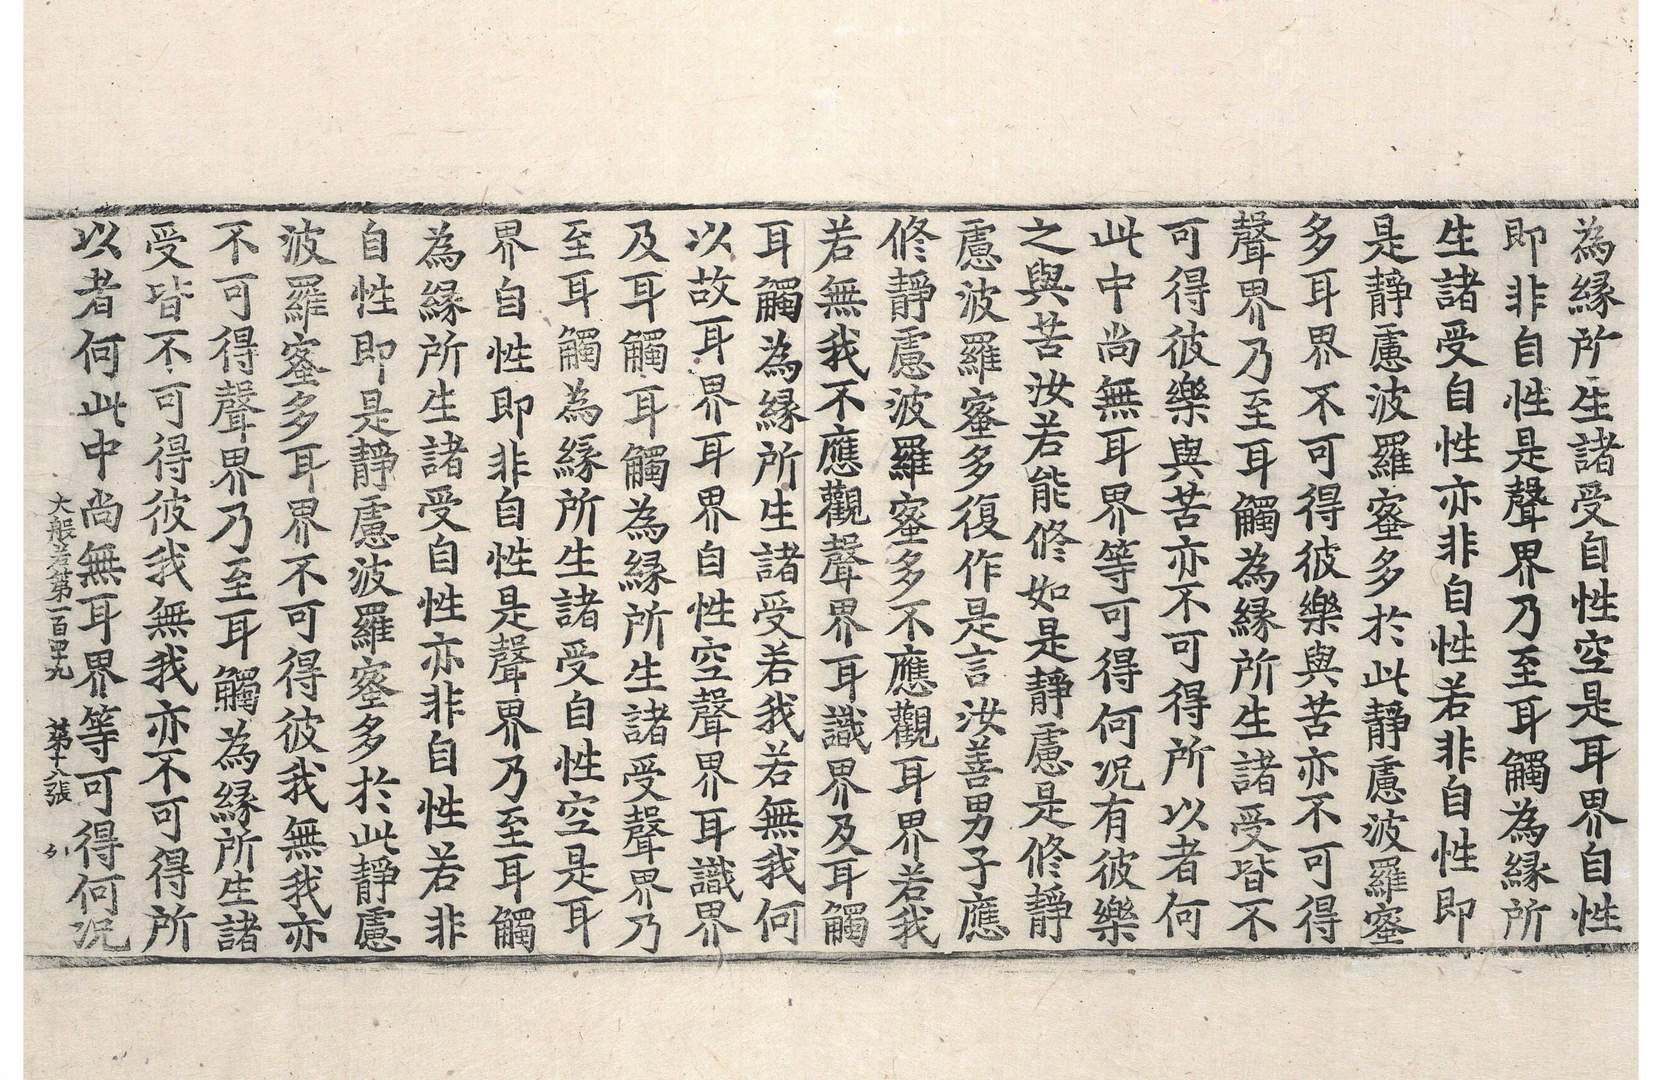 為縁所生諸受自性空是耳界自性
即非自性是聲界乃至耳觸為縁所
生諸受自性亦非自性若非自性即
是靜慮波羅蜜多於此靜慮波羅蜜
多耳界不可得彼樂與苦亦不可得
聲界乃至耳觸為縁所生諸受皆不
可得彼樂與苦亦不可得所以者何
此中尚無耳界等可得何况有彼樂
之與苦汝若能修如是靜慮是修靜
慮波羅蜜多復作是言汝善男子應
修靜慮波羅蜜多不應觀耳界若我
若無我不應觀聲界耳識界及耳觸
耳觸為縁所生諸受若我若無我何
以故耳界耳界自性空聲界耳識界
及耳觸耳觸為縁所生諸受聲界乃
至耳觸為縁所生諸受自性空是耳
界自性即非自性是聲界乃至耳觸
為縁所生諸受自性亦非自性若非
自性即是靜慮波羅蜜多於此靜慮
波羅蜜多耳界不可得彼我無我亦
不可得聲界乃至耳觸為縁所生諸
受皆不可得彼我無我亦不可得所
以者何此中尚無耳界等可得何况
大般若第一百四九 第十八張